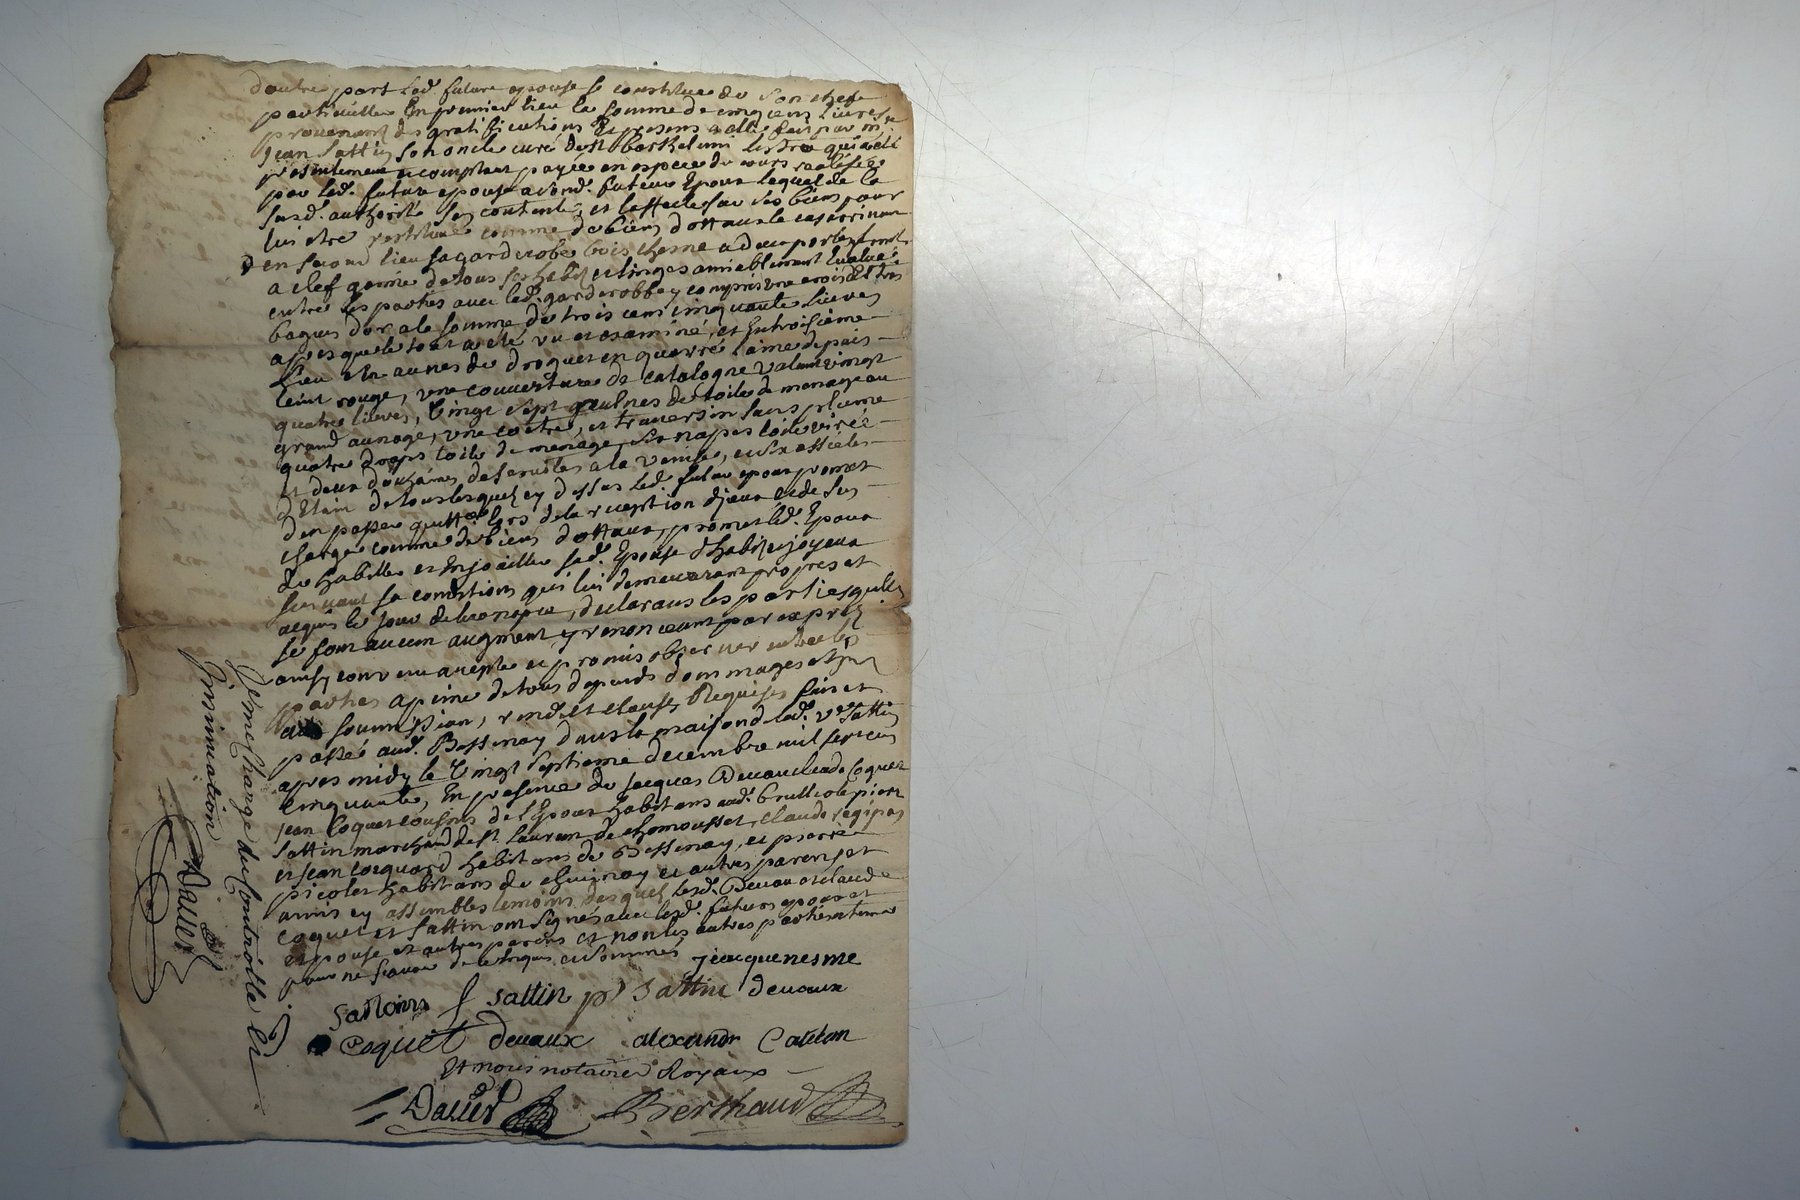 d'autre part lad. future epouse se constitue de son chef
particullier En premier lieu la somme de cinq cens livres
provenant des gratiffications Et presens a elle fait par mr
Jean Sattin son oncle curé de st barthelemi lestra qui a eté
presentement comptant payée en espece du cours
par lad. future epouse aud. futeur Epoux lequel de la
susd. authorité sen contente, et laffecte sur ses biens pour
lui etre restitué comme de biens dottaux le cas arrivant
en second lieu sa garderobe bois chesne a deux portes fermt
a clef garnie de tous ses habits et linges amiablement Evalué
entre les parties avec lad. garderobbe y compris une croix et
bagues d'or a la somme de trois cens cinquante livres
apres que le tout a eté vu et examiné, et En troisieme
Lieu aunes de droguet en quarré laine depais
teint rouge, une couverture de catalogne valant vingt
quatre livres, vingt sept aulnes de toile de menage au
grand aunage, une coitre, et traversin sans plume
quatre draps toile de menage, six napes toile
et deux douzaines de serviettes a la venise, et six assietes
d'Etain de tous lesquels cy dessus led. futur epoux promet
d'en passer quittce lors de la reception d'yceux et de sen
charger comme de biens dottaux, promet led. Epoux
de habiller et Enjoailler sad. Epouse d'habits et joyaux
suivant sa condition qui lui demeureront propres et
acquis le jour de la nopce, declarans les parties quelles
se font aucun augment y renonceant par exprés
ainsy convenu accepté et promis observer entre les
parties a peine de tous depends dommages et
aux soumission, renon et clauses Requises fait et
passé aud. Bessenay dans la maison de lad. ve Sattin
apres midy le vingt septieme decembre mil sept cens
cinquante, En presence de Jacques Devaux claude Coquet
Jean Coquet cousins de l'Epoux habitans aud. brullioles pierre
Sattin marchand de st laurent de chamousset, claude
et Jean coquard habitans de Bessenay, et pierre
picolet habitans de chevinay et autres parens et
amis cy assemblés temoins lesquels lesd. Devaux claude
coquet et Sattin ont signés avec lesd. futurs epoux et
epouse et autres parens et non les autres parties et temoins
pour ne scavoir de ce enquis et sommés jeacquenesme
f sattin pr sattin devaux
coquet devaux alexandr Catelan
Et nous notaires Royaux
Davier Berthaud
Je me charge du controlle et
insinuation
Davier